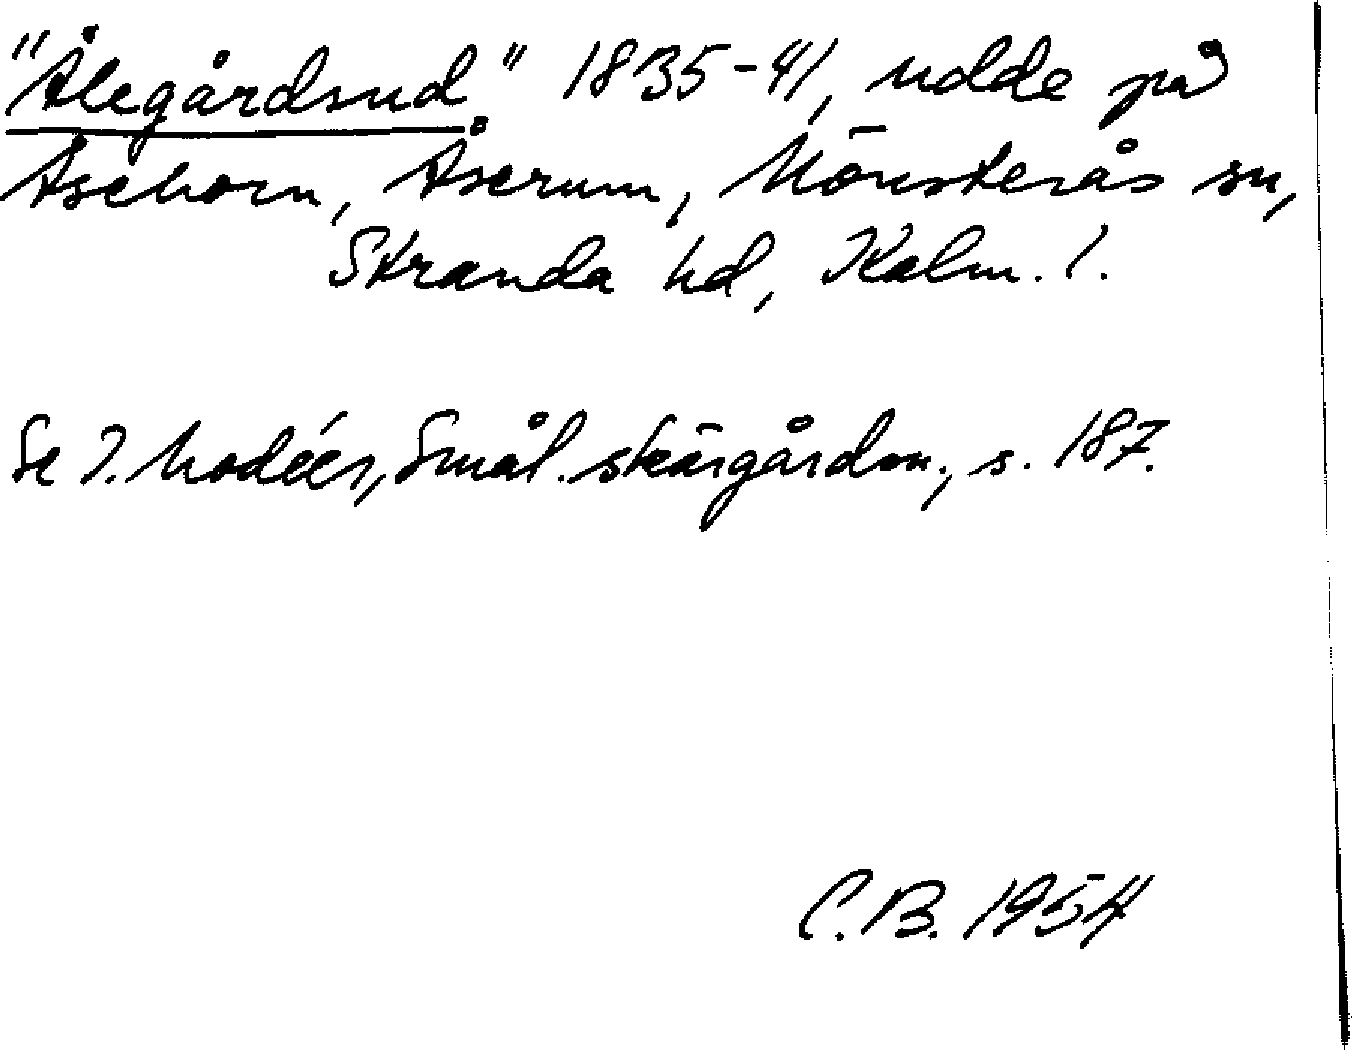 "Ålegårdsud" 1835-41, udde på
Åsehorn, Åserum, Mönsterås sn,
Stranda hd, Kalm. l.
Se I. Modéer, Smål. skärgårdsn., s. 187.
C.B. 1954